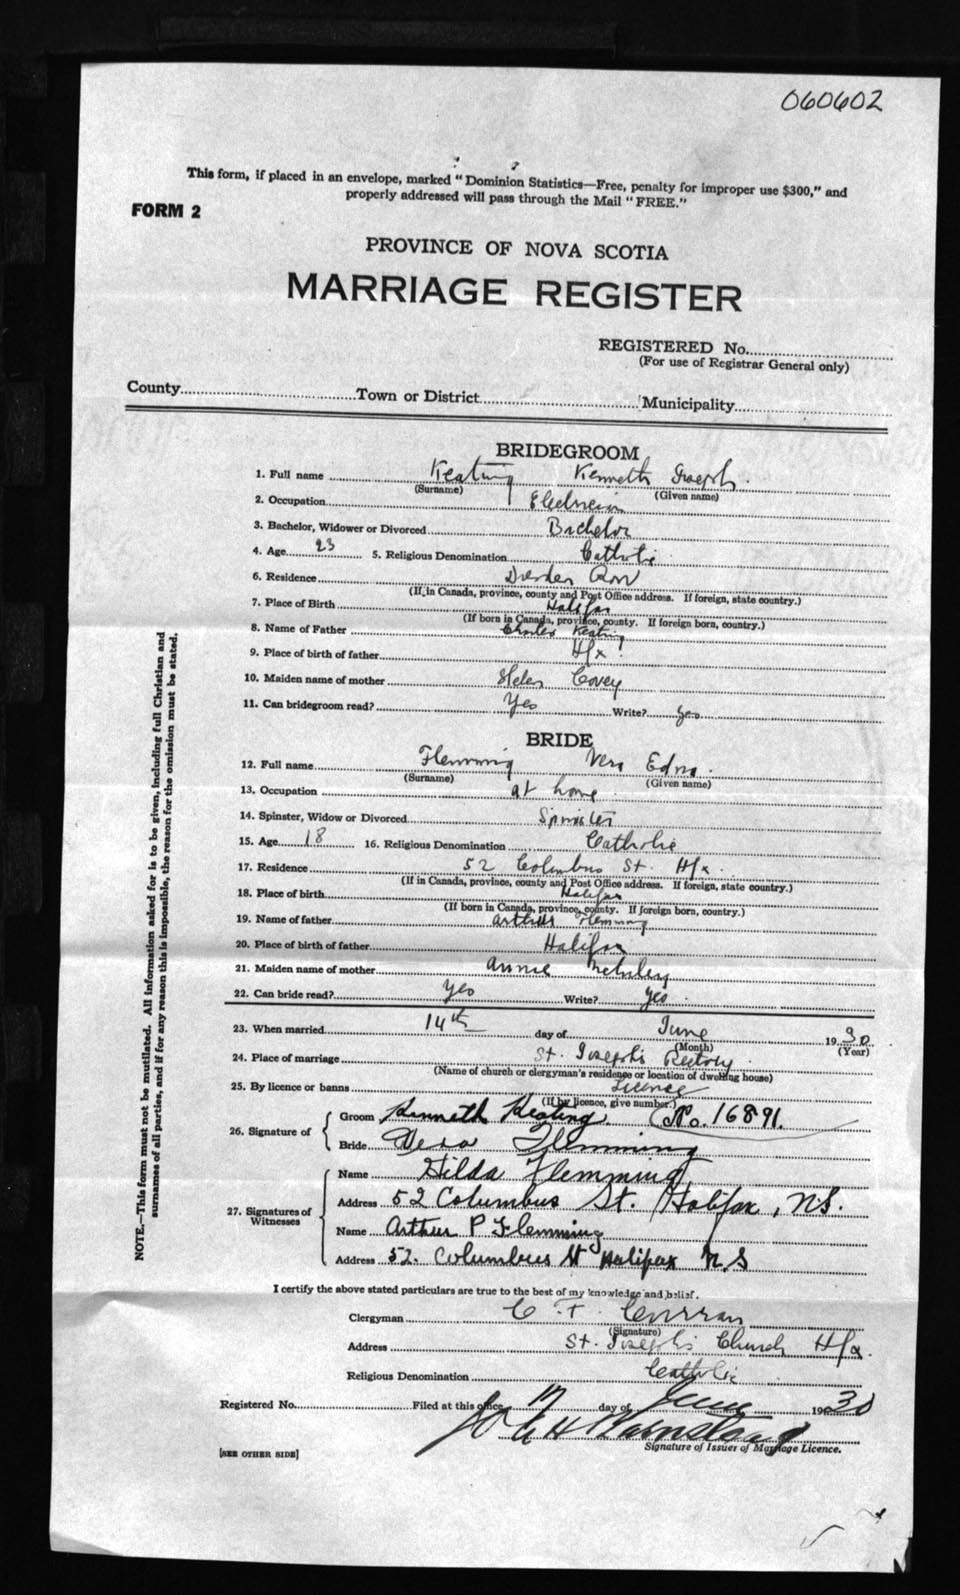 060602
This form, if placed in an envelope, marked "Dominion Statistics—Free, penalty for improper use $300," and
properly addressed will pass through the Mail "FREE."
FORM 2
PROVINCE OF NOVA SCOTIA
MARRIAGE REGISTER
REGISTERED No.
(For use of Registrar General only)
County Town or District Municipality
BRIDEGROOM
1. Full name Keating Kenneth Joseph
(Surname) (Given name)
2. Occupation Electrician
3. Bachelor, Widower or Divorced Bachelor
4. Age 23 5. Religious Denomination Catholic
6. Residence Dresden Row
(If in Canada, province, county and Post Office address. If foreign, state country.)
7. Place of Birth Halifax
(If born in Canada, province, county. If foreign born, country.)
8. Name of Father Charles Keating
9. Place of birth of father Hfx
10. Maiden name of mother Helen Covey
11. Can bridegroom read? Yes Write? Yes
BRIDE
12. Full name Flemming Vera Edna
(Surname) (Given name)
13. Occupation at home
14. Spinster, Widow or Divorced Spinster
15. Age 18 16. Religious Denomination Catholic
17. Residence 52 Columbus St. Hfx.
(If in Canada, province, county and Post Office address. If foreign, state country.)
18. Place of birth Halifax
(If born in Canada, province, county. If foreign born, country.)
19. Name of father Arthur Flemming
20. Place of birth of father Halifax
21. Maiden name of mother Annie
22. Can bride read? yes Write? yes
23. When married 14th day of June 1930
(Month) (Year)
24. Place of marriage St. Joseph's Rectory
(Name of church or clergyman's residence or location of dwelling house)
25. By licence or banns Licence
(If by licence, give number.) (No. 16891.
26. Signature of
Groom Kenneth Keating.
Bride Vera Flemming
27. Signatures of Witnesses
Name Hilda Flemming
Address 52 Columbus St. Halifax, N.S.
Name Arthur P Flemming
Address 52. Columbus St Halifax N.S
I certify the above stated particulars are true to the best of my knowledge and belief.
Clergyman C. F. Curran
(Signature)
Address St. Joseph's Church Hfx.
Religious Denomination Catholic
Registered No. Filed at this office 17 day of June 1930
Signature of Issuer of Marriage Licence.
[SEE OTHER SIDE]
NOTE.—This form must not be mutilated. All information asked for is to be given, including full Christian and
surnames of all parties, and if for any reason this is impossible, the reason for the omission must be stated.